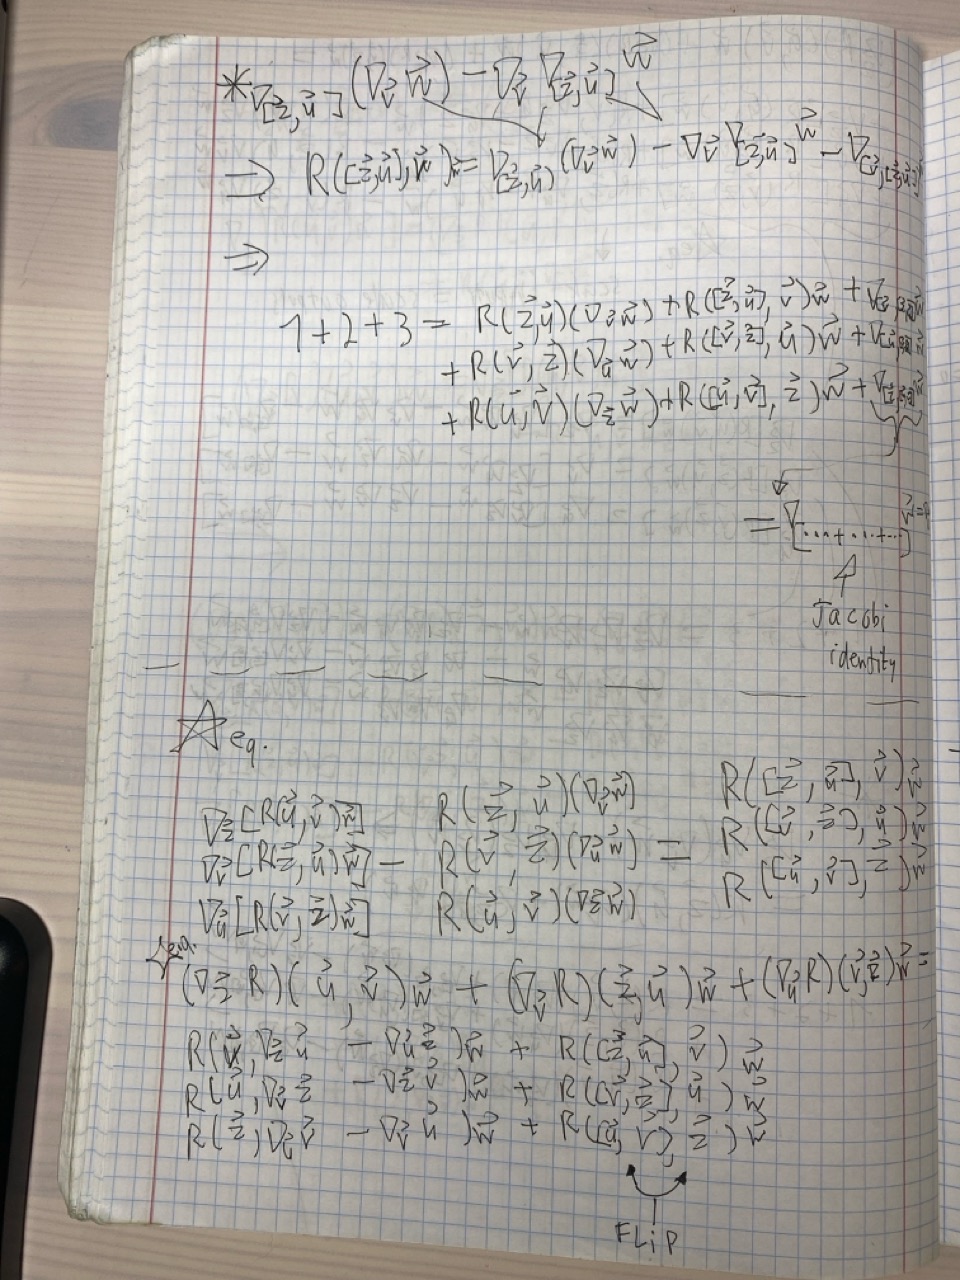 * ∇_[z⃗,u⃗] (∇_v⃗ w⃗) − ∇_v⃗ ∇_[z⃗,u⃗] w⃗
⇒ R([z⃗,u⃗],w⃗)w⃗ = ∇_[z⃗,u⃗] (∇_v⃗ w⃗) − ∇_v⃗ ∇_[z⃗,u⃗] w⃗ − ∇_[v⃗,[z⃗,u⃗]]
⇒
1+2+3 = R(z⃗,u⃗)(∇_v⃗ w⃗) + R([z⃗,u⃗], v⃗)w⃗ + ∇
+ R(v⃗, z⃗)(∇_u⃗ w⃗) + R([v⃗,z⃗], u⃗)w⃗ + ∇
+ R(u⃗, v⃗)(∇_z⃗ w⃗) + R([u⃗,v⃗], z⃗)w⃗ + ∇
= ∇_[...+...+...] w⃗ =
Jacobi
identity
☆ eq.
∇_z⃗ [R(u⃗,v⃗)w⃗] R(z⃗, u⃗)(∇_v⃗ w⃗) R([z⃗, u⃗], v⃗)w⃗
∇_v⃗ [R(z⃗,u⃗)w⃗] − R(v⃗, z⃗)(∇_u⃗ w⃗) = R([v⃗, z⃗], u⃗)w⃗
∇_u⃗ [R(v⃗,z⃗)w⃗] R(u⃗, v⃗)(∇_z⃗ w⃗) R([u⃗, v⃗], z⃗)w⃗
✧ eq.
(∇_z⃗ R)(u⃗, v⃗)w⃗ + (∇_v⃗ R)(z⃗,u⃗)w⃗ + (∇_u⃗ R)(v⃗,z⃗)w⃗ =
R(v⃗,∇_z⃗ u⃗ − ∇_u⃗ z⃗)w⃗ + R([z⃗,u⃗], v⃗)w⃗
R(u⃗,∇_v⃗ z⃗ − ∇_z⃗ v⃗)w⃗ + R([v⃗,z⃗], u⃗)w⃗
R(z⃗,∇_u⃗ v⃗ − ∇_v⃗ u⃗)w⃗ + R([u⃗, v⃗], z⃗)w⃗
FLiP